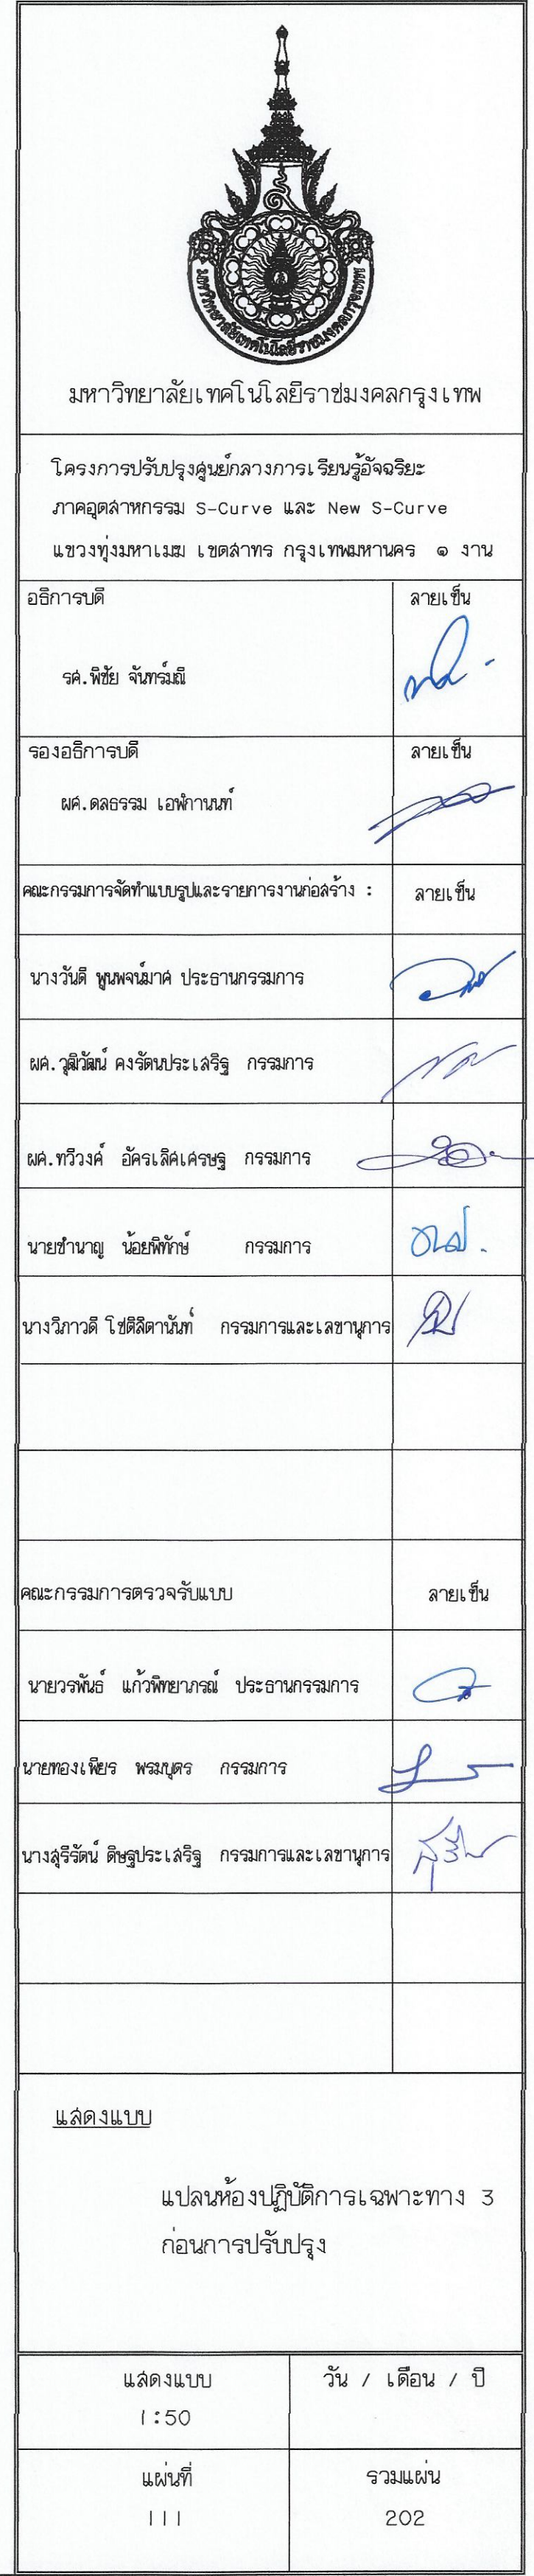 มหาวิทยาลัยเทคโนโลยีราชมงคลกรุงเทพ
มหาวิทยาลัยเทคโนโลยีราชมงคลกรุงเทพ
โครงการปรับปรุงศูนย์กลางการเรียนรู้อัจฉริยะ
ภาคอุตสาหกรรม S-Curve และ New S-Curve
แขวงทุ่งมหาเมฆ เขตสาทร กรุงเทพมหานคร ๑ งาน
อธิการบดี ลายเซ็น
รศ.พิชัย จันทร์มณี
รองอธิการบดี ลายเซ็น
ผศ.ดลธรรม เอฬกานนท์
คณะกรรมการจัดทำแบบรูปและรายการงานก่อสร้าง : ลายเซ็น
นางวันดี พูนพจน์มาศ ประธานกรรมการ
ผศ.วุฒิวัฒน์ คงรัตนประเสริฐ กรรมการ
ผศ.ทวีวงศ์ อัครเลิศเศรษฐ กรรมการ
นายชำนาญ น้อยพิทักษ์ กรรมการ
นางวิภาวดี โชติลีตานันท์ กรรมการและเลขานุการ
คณะกรรมการตรวจรับแบบ ลายเซ็น
นายวรพันธ์ แก้วพิทยาภรณ์ ประธานกรรมการ
นายทองเพียร พรมบุตร กรรมการ
นางสุรีรัตน์ ดิษฐประเสริฐ กรรมการและเลขานุการ
แสดงแบบ
แปลนห้องปฏิบัติการเฉพาะทาง 3
ก่อนการปรับปรุง
แสดงแบบ วัน / เดือน / ปี
1:50
แผ่นที่ รวมแผ่น
111 202